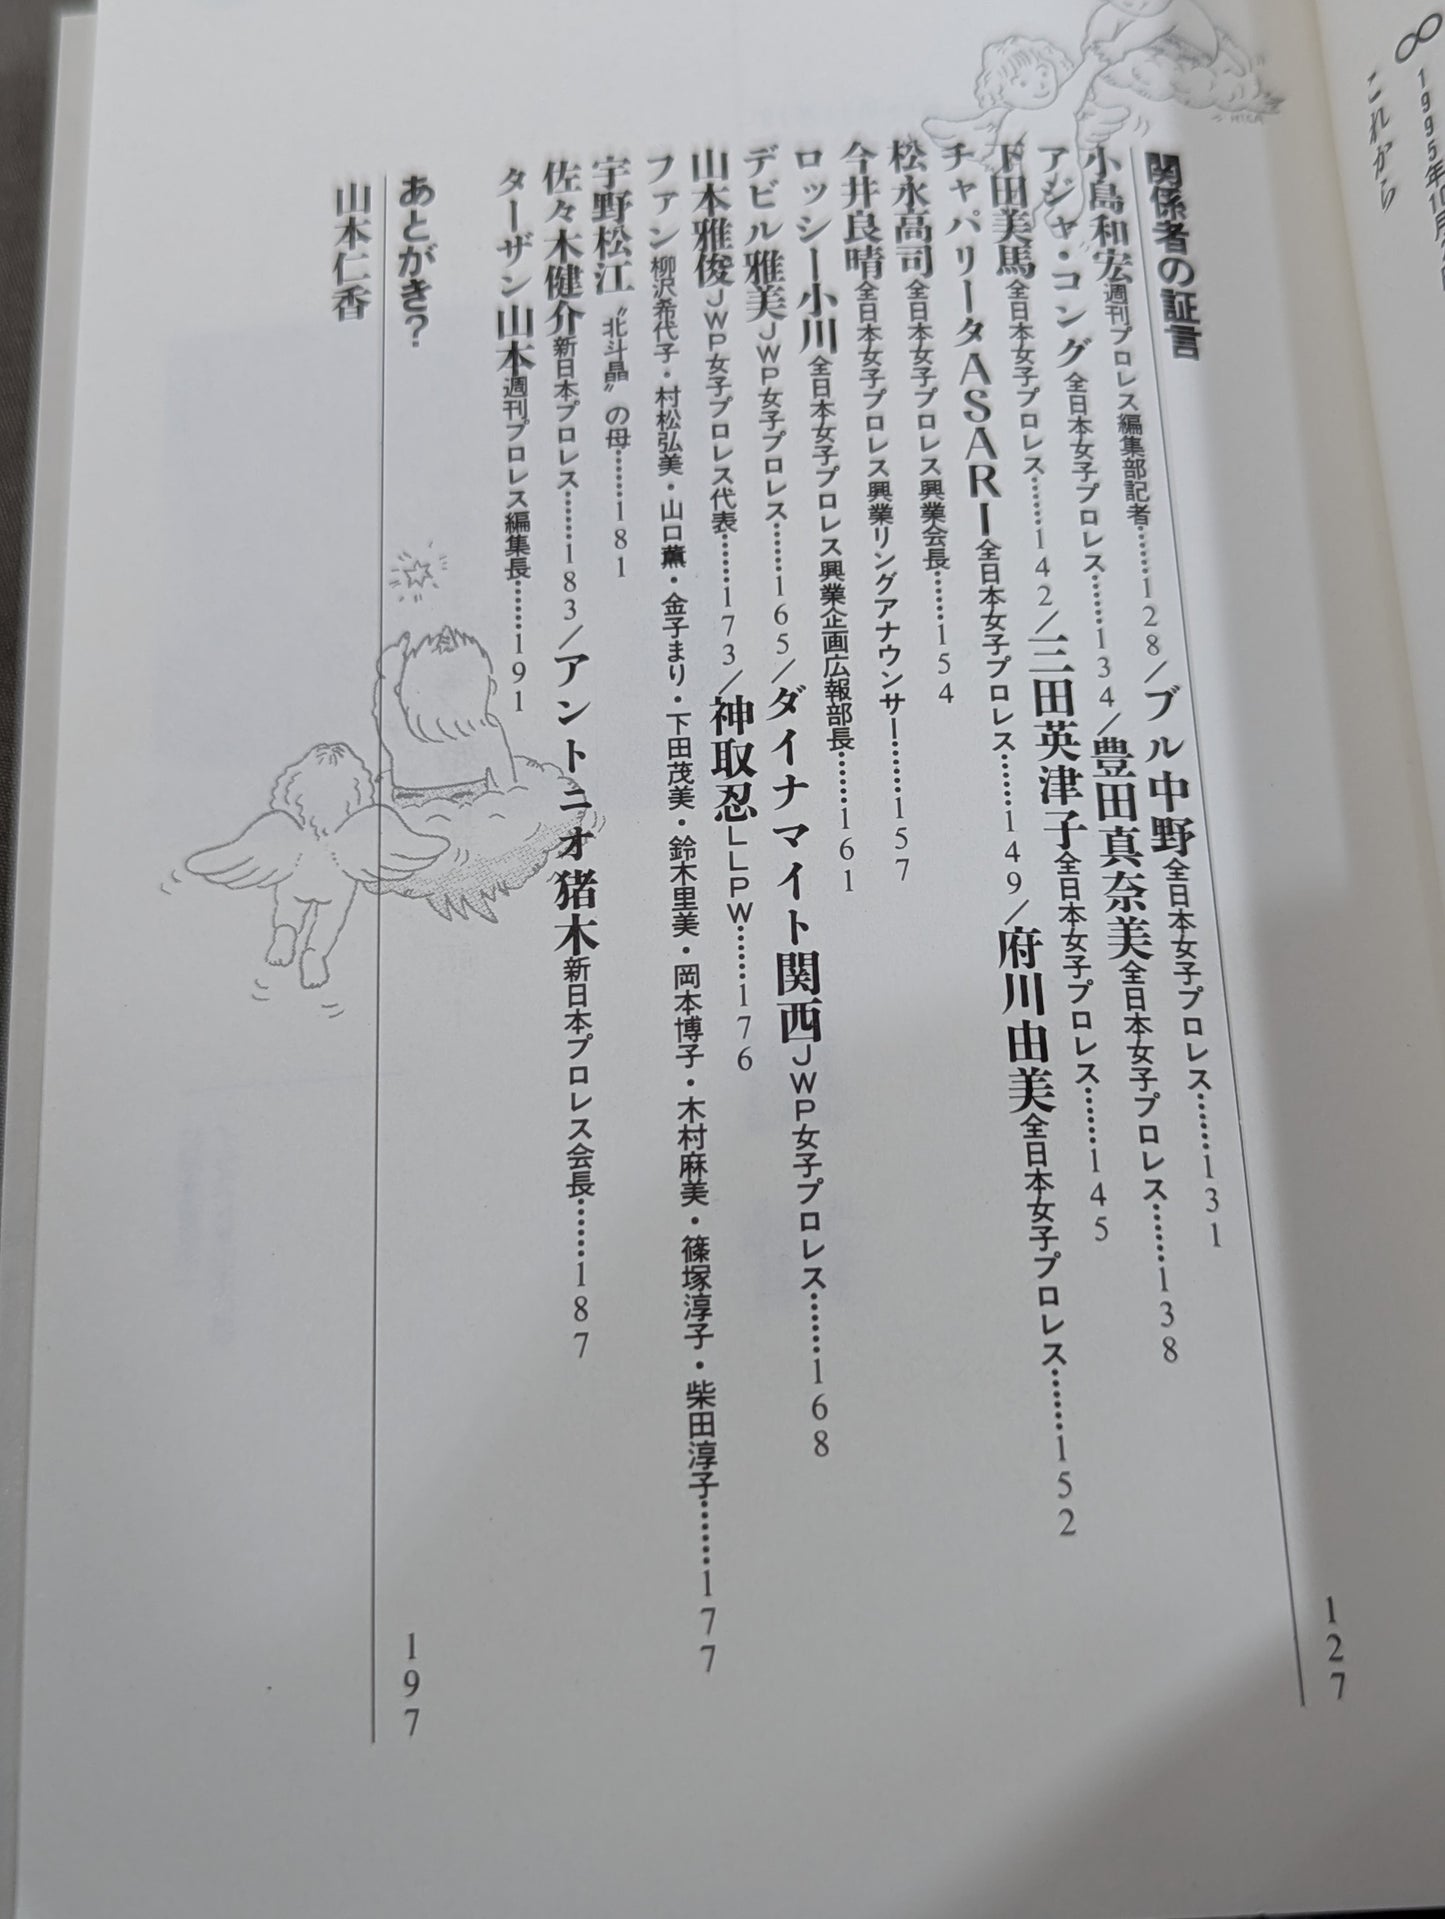 8
これから
関係者の証言
127
小島和宏週刊プロレス編集部記者……128／ブル中野全日本女子プロレス……131
アジャ・コング全日本女子プロレス……134／豊田真奈美全日本女子プロレス……138
下田美馬全日本女子プロレス……142／三田英津子全日本女子プロレス……145
チャパリータASARI全日本女子プロレス……149／府川由美全日本女子プロレス……152
松永高司全日本女子プロレス興業会長……154
今井良晴全日本女子プロレス興業リングアナウンサー……157
ロッシー小川全日本女子プロレス興業企画広報部長……161
デビル雅美JWP女子プロレス……165／ダイナマイト関西JWP女子プロレス……168
山本雅俊JWP女子プロレス代表……173／神取忍LLPW……176
ファン柳沢希代子・村松弘美・山口薫・金子まり・下田茂美・鈴木里美・岡本博子・木村麻美・篠塚淳子・柴田淳子……177
宇野松江〝北斗晶〟の母……181
佐々木健介新日本プロレス……183／アントニオ猪木新日本プロレス会長……187
ターザン山本週刊プロレス編集長……191
あとがき？
197
山本仁香